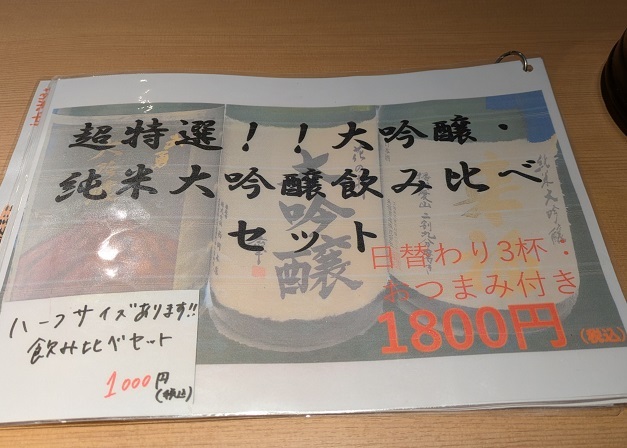 超特選！！大吟醸・
純米大吟醸飲み比べ
セット
大吟醸
純米大吟醸
二割九分
日替わり3杯・
おつまみ付き
1800円(税込)
ハーフサイズあります!!
飲み比べセット
1000円(税込)